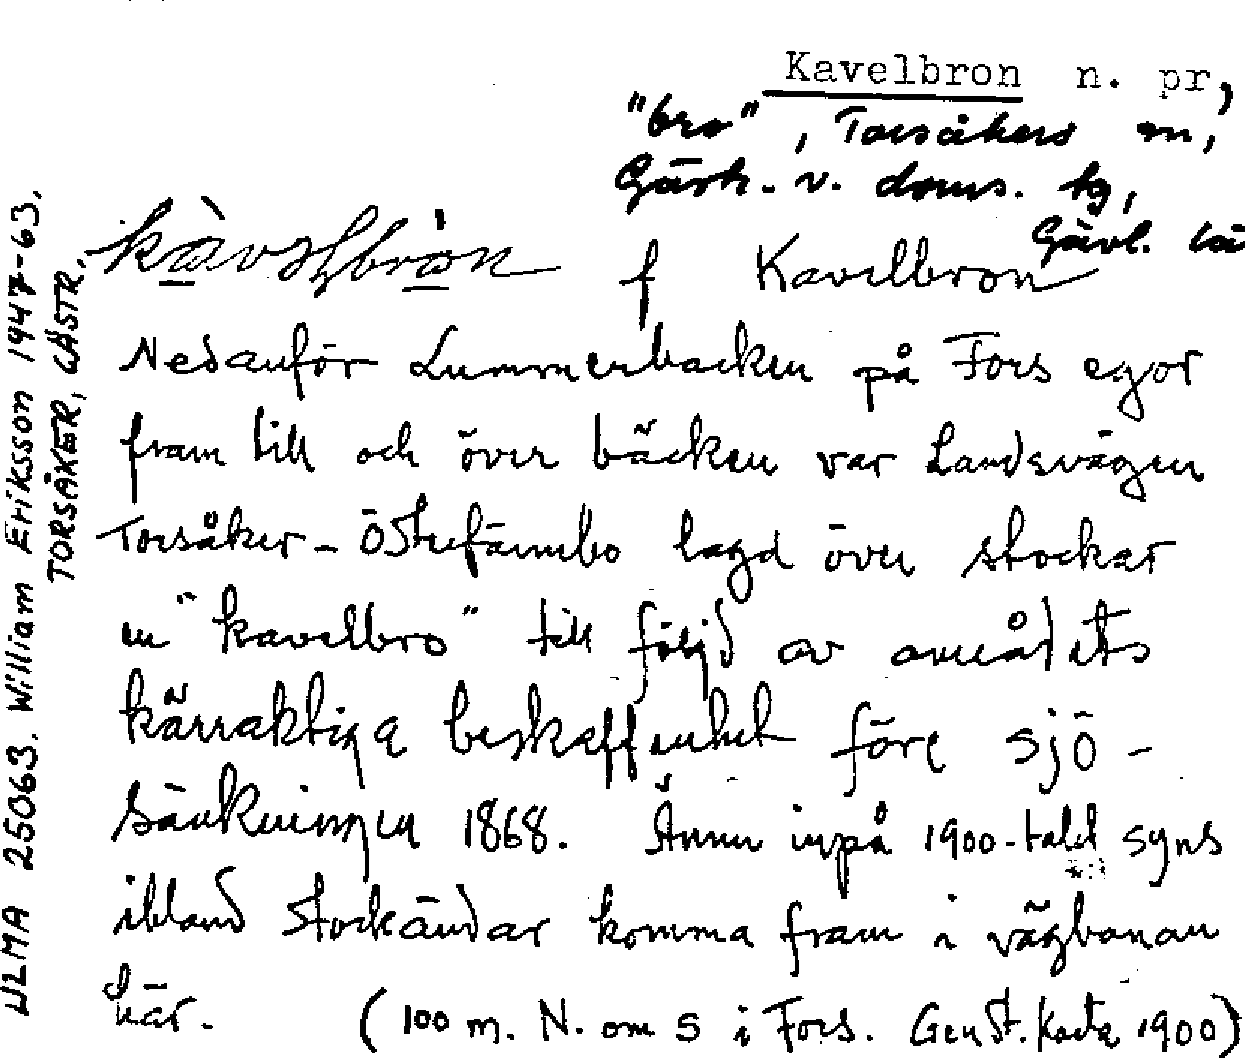 Kavelbron n. pr,
"bro", Torsåkers sn,
Gästr. v. doms. tg,
Gävl. lä
f Kavelbron
Nedanför Lummerbacken på Fors egor
fram till och över bäcken var Landsvägen
Torsåker - Österfärnebo lagd över stockar
en "kavelbro" till följd av områdets
kärraktiga beskaffenhet före sjö-
sänkningen 1868. Ännu inpå 1900-talet syns
ibland stockändar komma fram i vägbanan
här. (100 m. N. om s i Fors. Genst. karta 1900)
ULMA 25063. William Eriksson 1947-63.
TORSÅKER, GÄSTR.